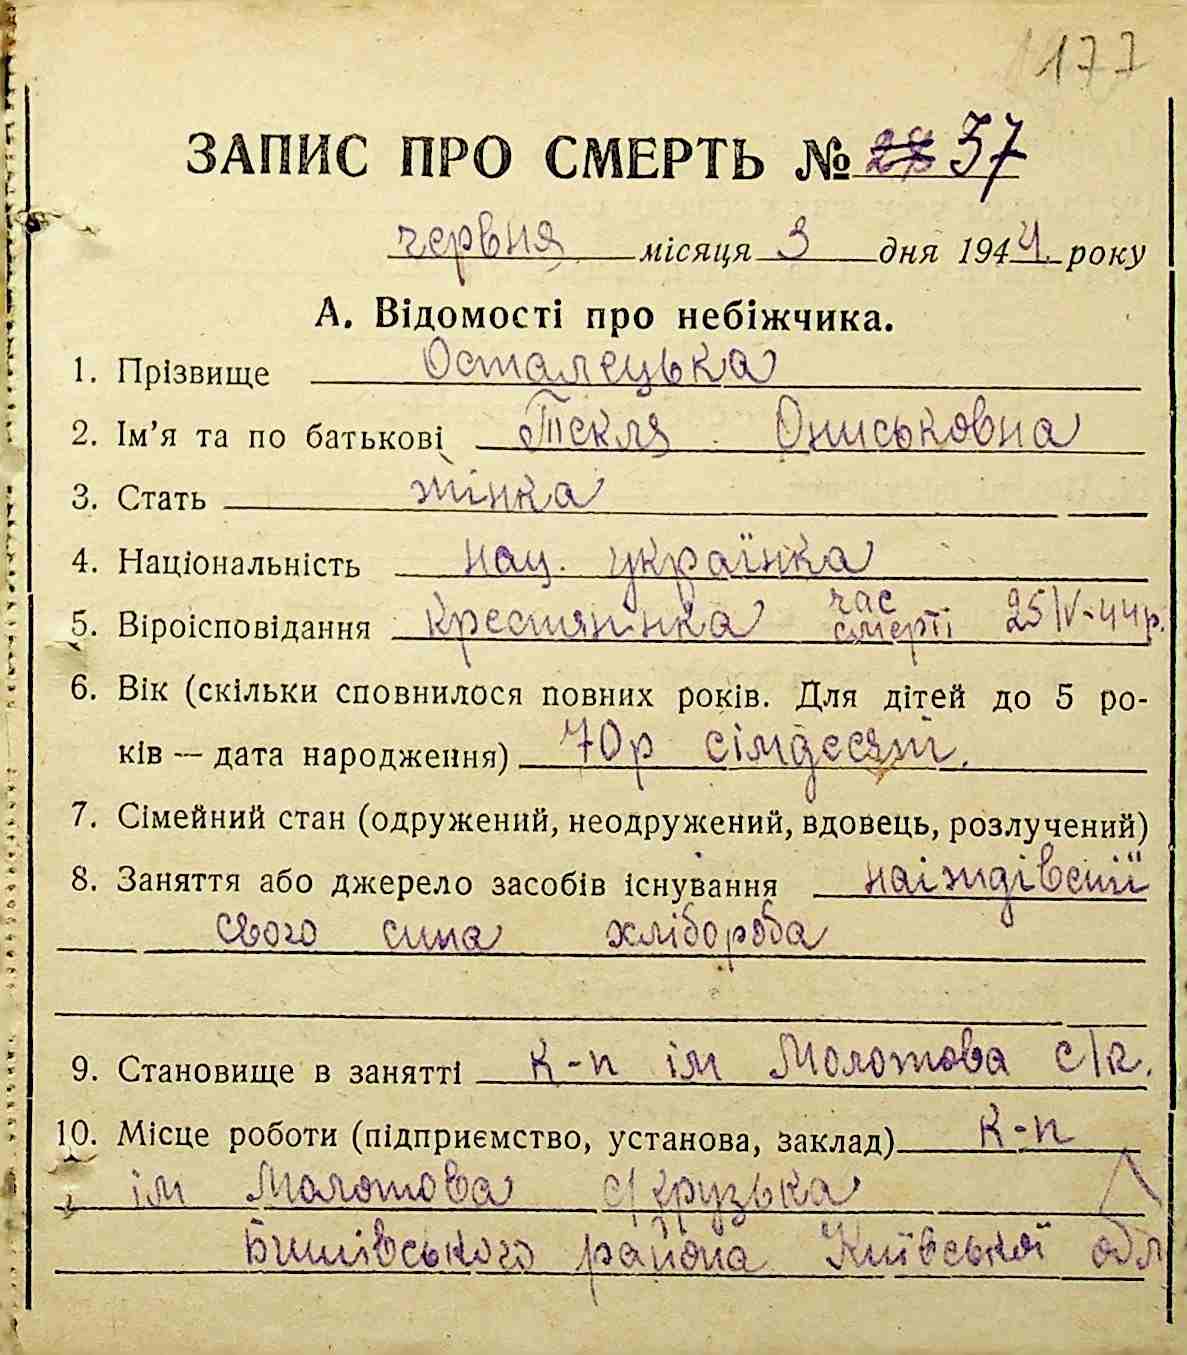 177
ЗАПИС ПРО СМЕРТЬ № 28 37
червня місяця 3 дня 1944 року
А. Відомості про небіжчика.
1. Прізвище Осталецька
2. Ім'я та по батькові Текля Ониськовна
3. Стать жінка
4. Національність нац. українка
5. Віроісповідання крестянінка час смерті 25/IV-44р.
6. Вік (скільки сповнилося повних років. Для дітей до 5 ро-
ків — дата народження) 70р сімдесят.
7. Сімейний стан (одружений, неодружений, вдовець, розлучений)
8. Заняття або джерело засобів існування наіждівеції
свого сина хлібороба
9. Становище в занятті к-п ім Молотова с/к.
10. Місце роботи (підприємство, установа, заклад) к-п
ім Молотова с/Крузька
Бишівського района Київської обл